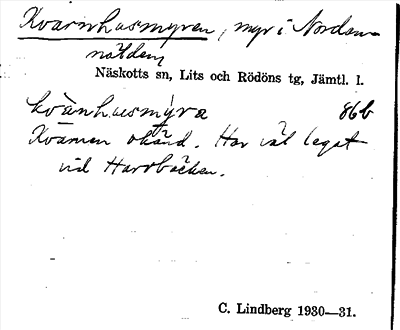 Kvarnhusmyren, myr i Nordan-
nälden,
Näskotts sn, Lits och Rödöns tg, Jämtl. l.
kvä̀nhusmýra 86b
Kvarnen okänd. Har väl legat
vid Harrbäcken.
C. Lindberg 1930—31.